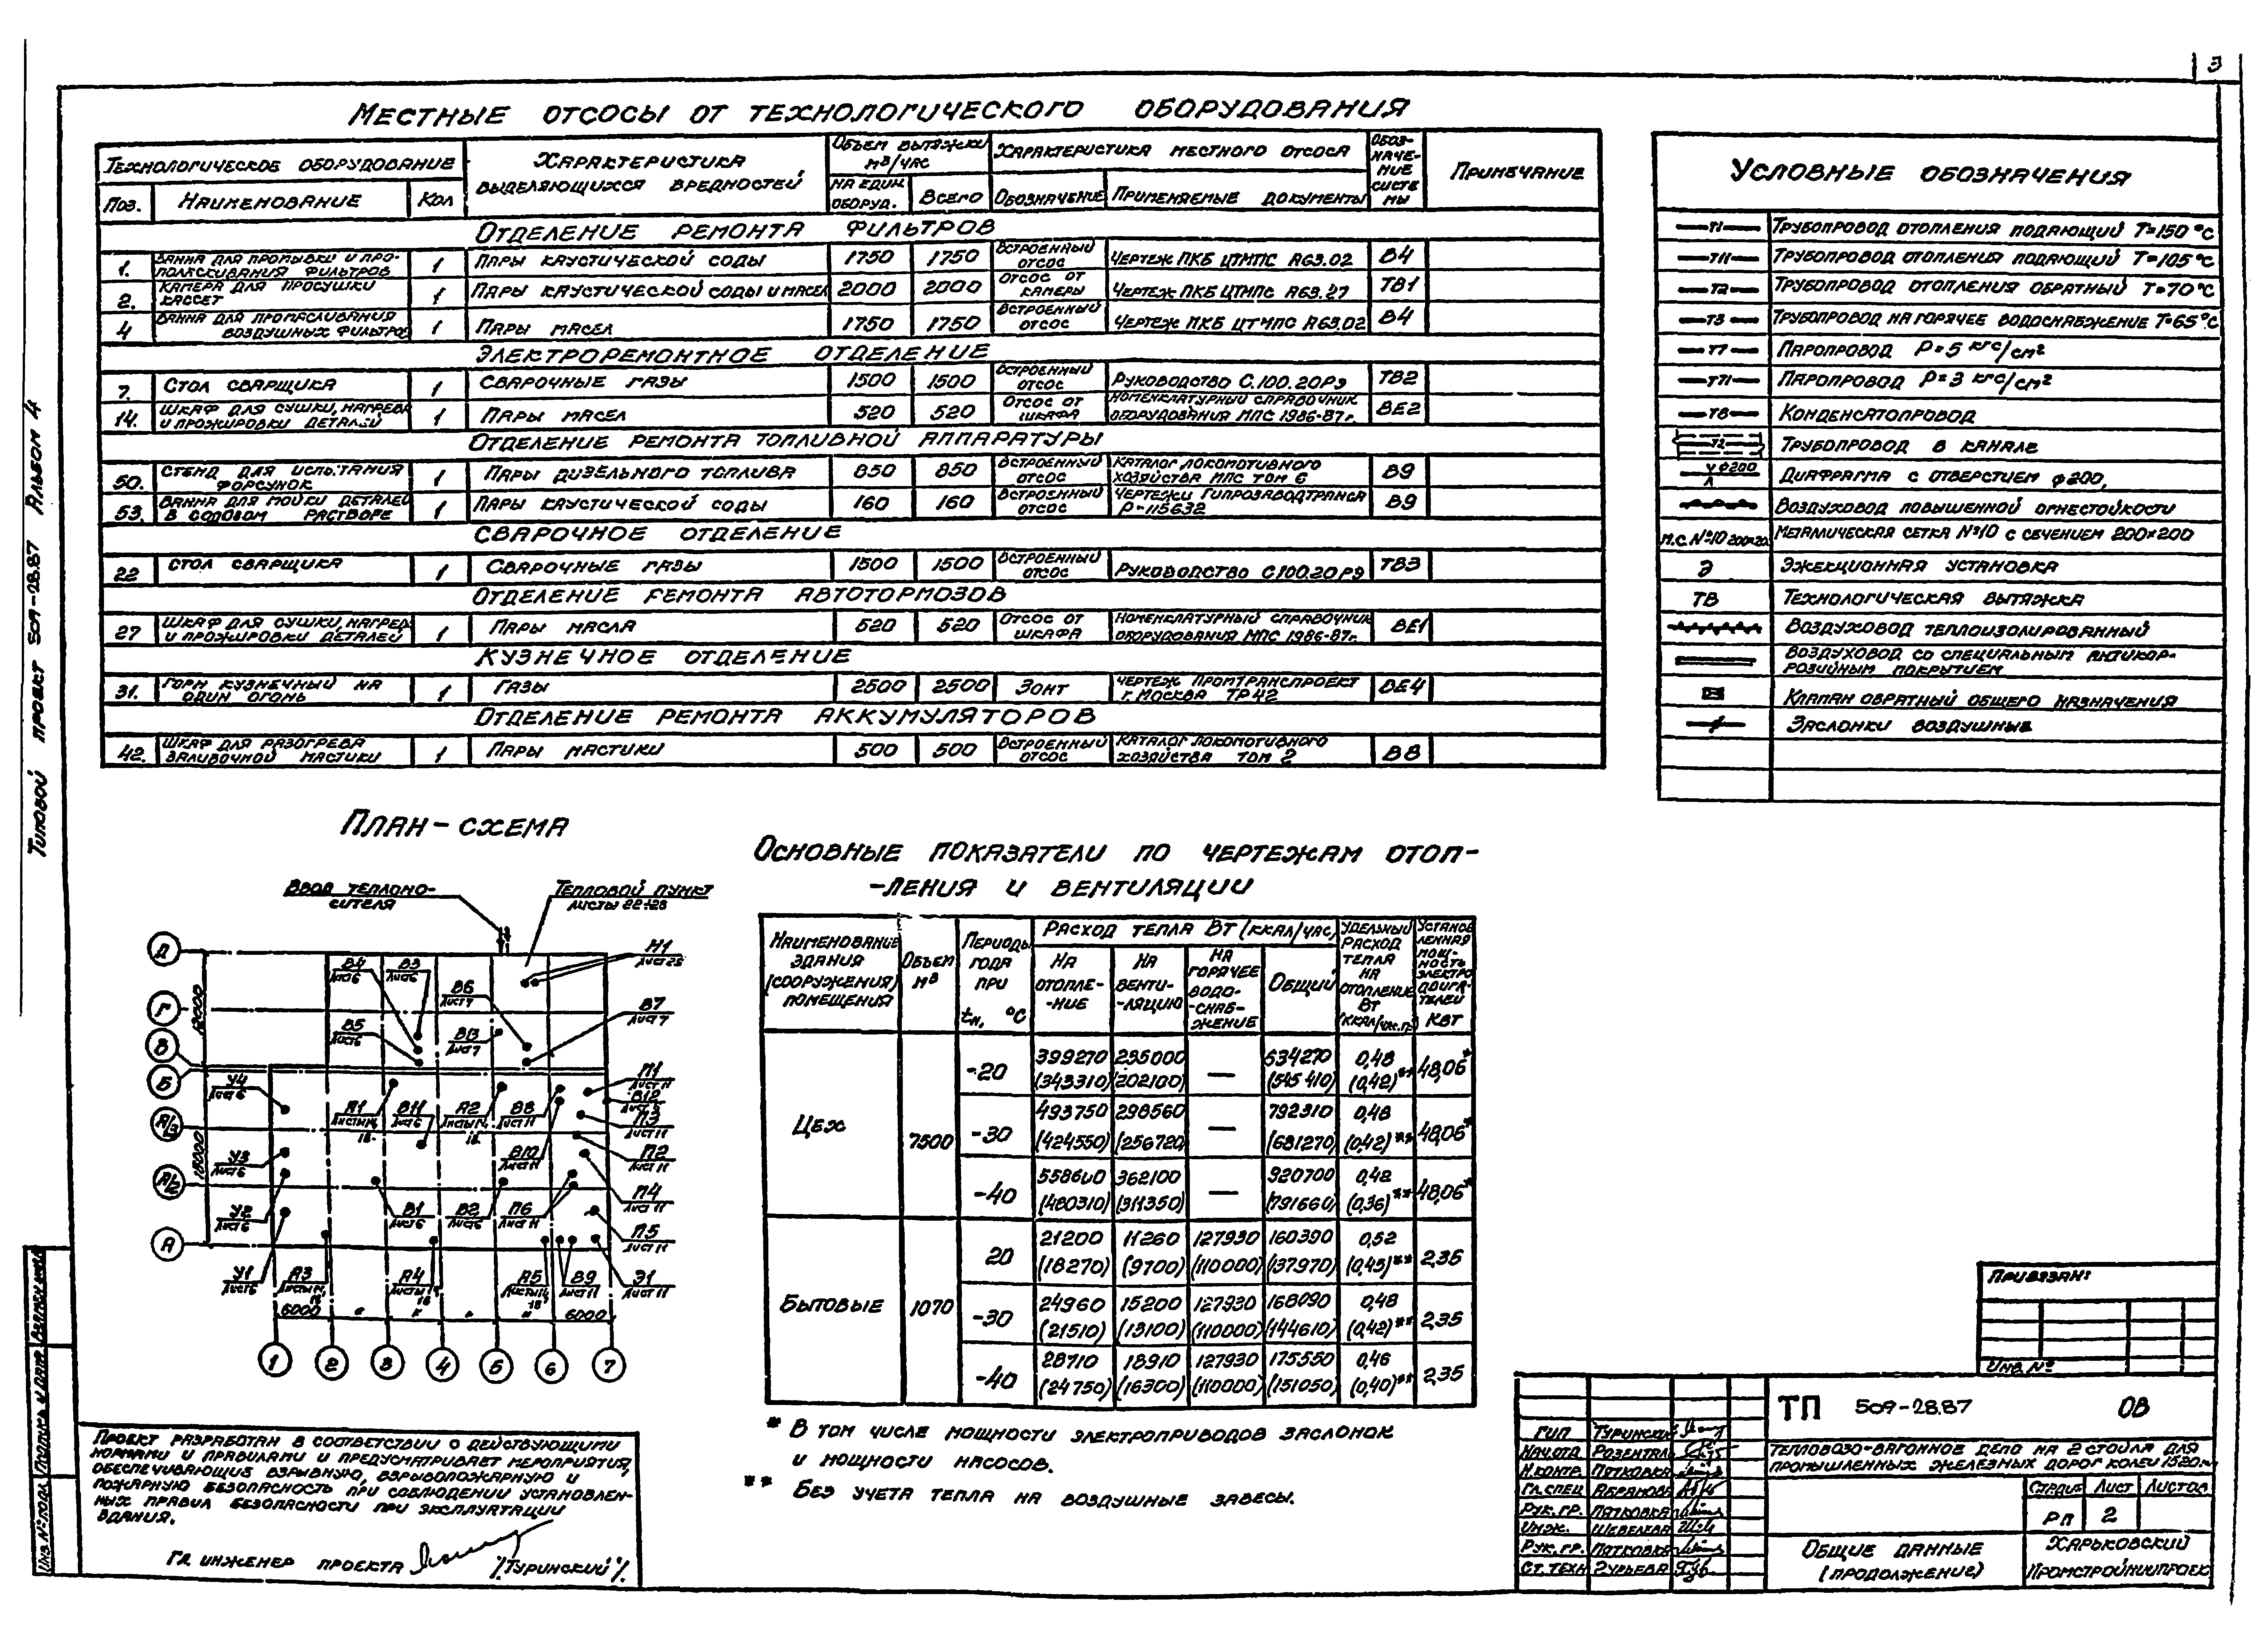 3
Местные отсосы от технологического оборудования
Технологическое оборудование
Характеристика выделяющихся вредностей
Объем вытяжки м³/час
Характеристика местного отсоса
Обозначение системы
Примечание
Поз. Наименование Кол
на един. оборуд. Всего
Обозначение Применяемые документы
Отделение ремонта фильтров
1. Ванна для промывки и прополаскивания фильтров 1 Пары каустической соды 1750 1750 Встроенный отсос Чертеж ПКБ ЦТМПС А63.02 В4
2. Камера для просушки кассет 1 Пары каустической соды и масел 2000 2000 Отсос от камеры Чертеж ПКБ ЦТМПС А63.27 ТВ1
4 Ванна для промасливания воздушных фильтров 1 Пары масел 1750 1750 Встроенный отсос Чертеж ПКБ ЦТМПС А63.02 В4
Электроремонтное отделение
7. Стол сварщика 1 Сварочные газы 1500 1500 Встроенный отсос Руководство С.100.20РЭ ТВ2
14. Шкаф для сушки, нагрева и прожировки деталей 1 Пары масел 520 520 Отсос от шкафа Номенклатурный справочник оборудования МПС 1986-87г. ВЕ2
Отделение ремонта топливной аппаратуры
50. Стенд для испытания форсунок 1 Пары дизельного топлива 850 850 Встроенный отсос Каталог локомотивного хозяйства МПС том 6 В9
53. Ванна для мойки деталей в содовом растворе 1 Пары каустической соды 160 160 Встроенный отсос Чертежи Гипрозаводтранса Р-115632 В9
Сварочное отделение
22 Стол сварщика 1 Сварочные газы 1500 1500 Встроенный отсос Руководство С100.20РЭ ТВ3
Отделение ремонта автотормозов
27 Шкаф для сушки, нагрев. и прожировки деталей 1 Пары масла 520 520 Отсос от шкафа Номенклатурный справочник оборудования МПС 1986-87г. ВЕ1
Кузнечное отделение
31. Горн кузнечный на один огонь 1 Газы 2500 2500 Зонт Чертеж Промтранспроект г. Москва ТР42 ВЕ4
Отделение ремонта аккумуляторов
42. Шкаф для разогрева заливочной мастики 1 Пары мастики 500 500 Встроенный отсос Каталог локомотивного хозяйства том 2 В8
Условные обозначения
Т1 Трубопровод отопления подающий Т=150°С
Т11 Трубопровод отопления подающий Т=105°С
Т2 Трубопровод отопления обратный Т=70°С
Т3 Трубопровод на горячее водоснабжение Т=65°С
Т7 Паропровод Р=5 кгс/см²
Т71 Паропровод Р=3 кгс/см²
Т8 Конденсатопровод
Т2 Трубопровод в канале
У Ф200 Л Диафрагма с отверстием ф200,
Воздуховод повышенной огнестойкости
М.С. №10 200×20 Металлическая сетка №10 с сечением 200×200
Э Эжекционная установка
ТВ Технологическая вытяжка
Воздуховод теплоизолированный
Воздуховод со специальным антикоррозийным покрытием
Клапан обратный общего назначения
Заслонки воздушные
Типовой проект 509-28.87 Альбом 4
План-схема
Ввод теплоносителя
Тепловой пункт
листы 22÷28
Д Г В Б А/3 А/2 А
12000
18000
Н1 Лист 28
В4 Лист 6
В3 Лист 6
В6 Лист 7
В7 Лист 7
В5 Лист 6
В13 Лист 7
У4 Лист 6
П1 Лист 11
В12
А1 Листы 14, 18
В11 Лист 6
А2 Листы 14, 18
В8 Лист 11
П3 Лист 11
У3 Лист 6
В10 Лист 11
П2 Лист 11
У2 Лист 6
В1 Лист 6
В2 Лист 6
П6 Лист 11
П4 Лист 11
П5 Лист 11
У1 Лист 6
А3 Листы 14,
А4 Листы 14, 18
А5 Листы 14, 18
В9 Листы 11
Э1 Лист 11
6000 " " " " 6000
1 2 3 4 5 6 7
Основные показатели по чертежам отоп-
-ления и вентиляции
Наименование здания (сооружения) помещения
Объем м³
Периоды года при tн, °С
Расход тепла Вт (ккал/час)
на отопле-
-ние
на венти-
-ляцию
на горячее водо-
-снаб-
-жение
Общий
Удельный расход тепла на отопление Вт
Установленная мощность электродвигателей кВт
Цех 7500
-20 399270 (343310) 235000 (202100) — 634270 (545410) 0,48 (0,42)** 48,06*
-30 493750 (424550) 298560 (256720) — 792310 (681270) 0,48 (0,42)** 48,06*
-40 558600 (480310) 362100 (311350) — 920700 (791660) 0,42 (0,36)** 48,06*
Бытовые 1070
20 21200 (18270) 11260 (9700) 127930 (110000) 160390 (137970) 0,52 (0,45)** 2,35
-30 24960 (21510) 15200 (13100) 127930 (110000) 168090 (144610) 0,48 (0,42)** 2,35
-40 28710 (24750) 18910 (16300) 127930 (110000) 175550 (151050) 0,46 (0,40)** 2,35
* В том числе мощности электроприводов заслонок
и мощности насосов.
** Без учета тепла на воздушные завесы.
Проект разработан в соответствии с действующими
нормами и правилами и предусматривает мероприятия,
обеспечивающие взрывную, взрывопожарную и
пожарную безопасность при соблюдении установлен-
ных правил безопасности при эксплуатации
здания.
Гл. инженер проекта /Туринский/.
Инв. № подл. Подпись и дата Взам. инв. №
Привязан:
Инв. №
ТП 509-28.87 ОВ
ГИП Туринский
Нач. отд. Розенталь
Н. контр. Пятковка
Гл. спец Абрамова
Рук. гр. Пятковка
Инж. Шевелева
Рук. гр. Пятковка
Ст. техн Гурьева
Тепловозо-вагонное депо на 2 стойла для
промышленных железных дорог колеи 1520мм
Стадия Лист Листов
РП 2
Общие данные
(продолжение)
Харьковский
Промстройниипроект